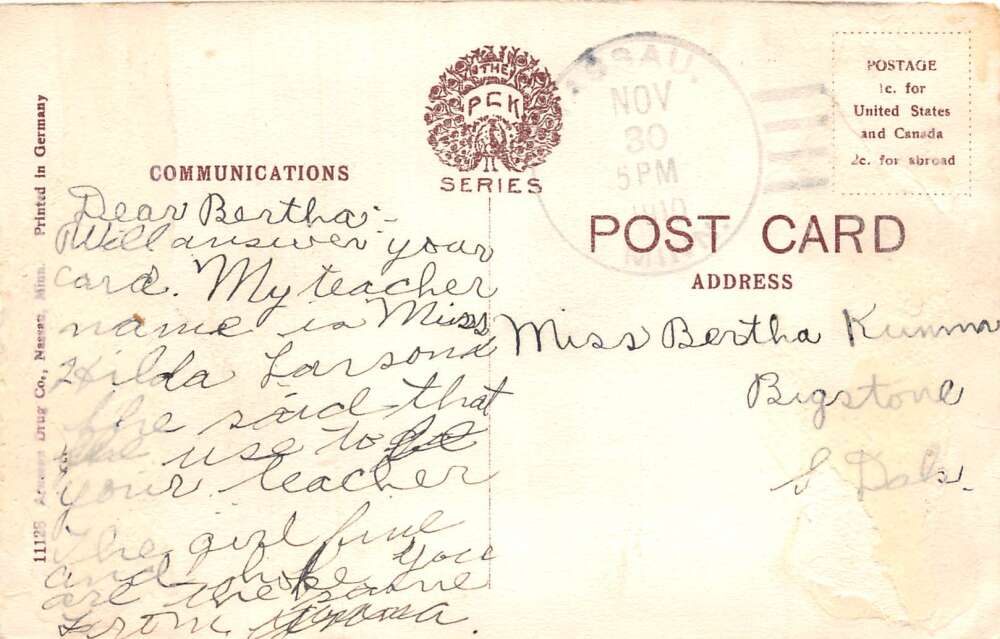 THE
PCK
SERIES
ASSAU.
NOV
30
5 PM
MINN.
POSTAGE
1c. for
United States
and Canada
2c. for abroad
COMMUNICATIONS
POST CARD
ADDRESS
11128 Drug Co., Nassau, Minn. Printed in Germany
Dear Bertha:-
Will answer your
card. My teacher
name is Miss
Hilda Larson
she said that
she use to be
your teacher
The girl fine
and hope you
are the same
From
Miss Bertha
Bigstone
S Dak.